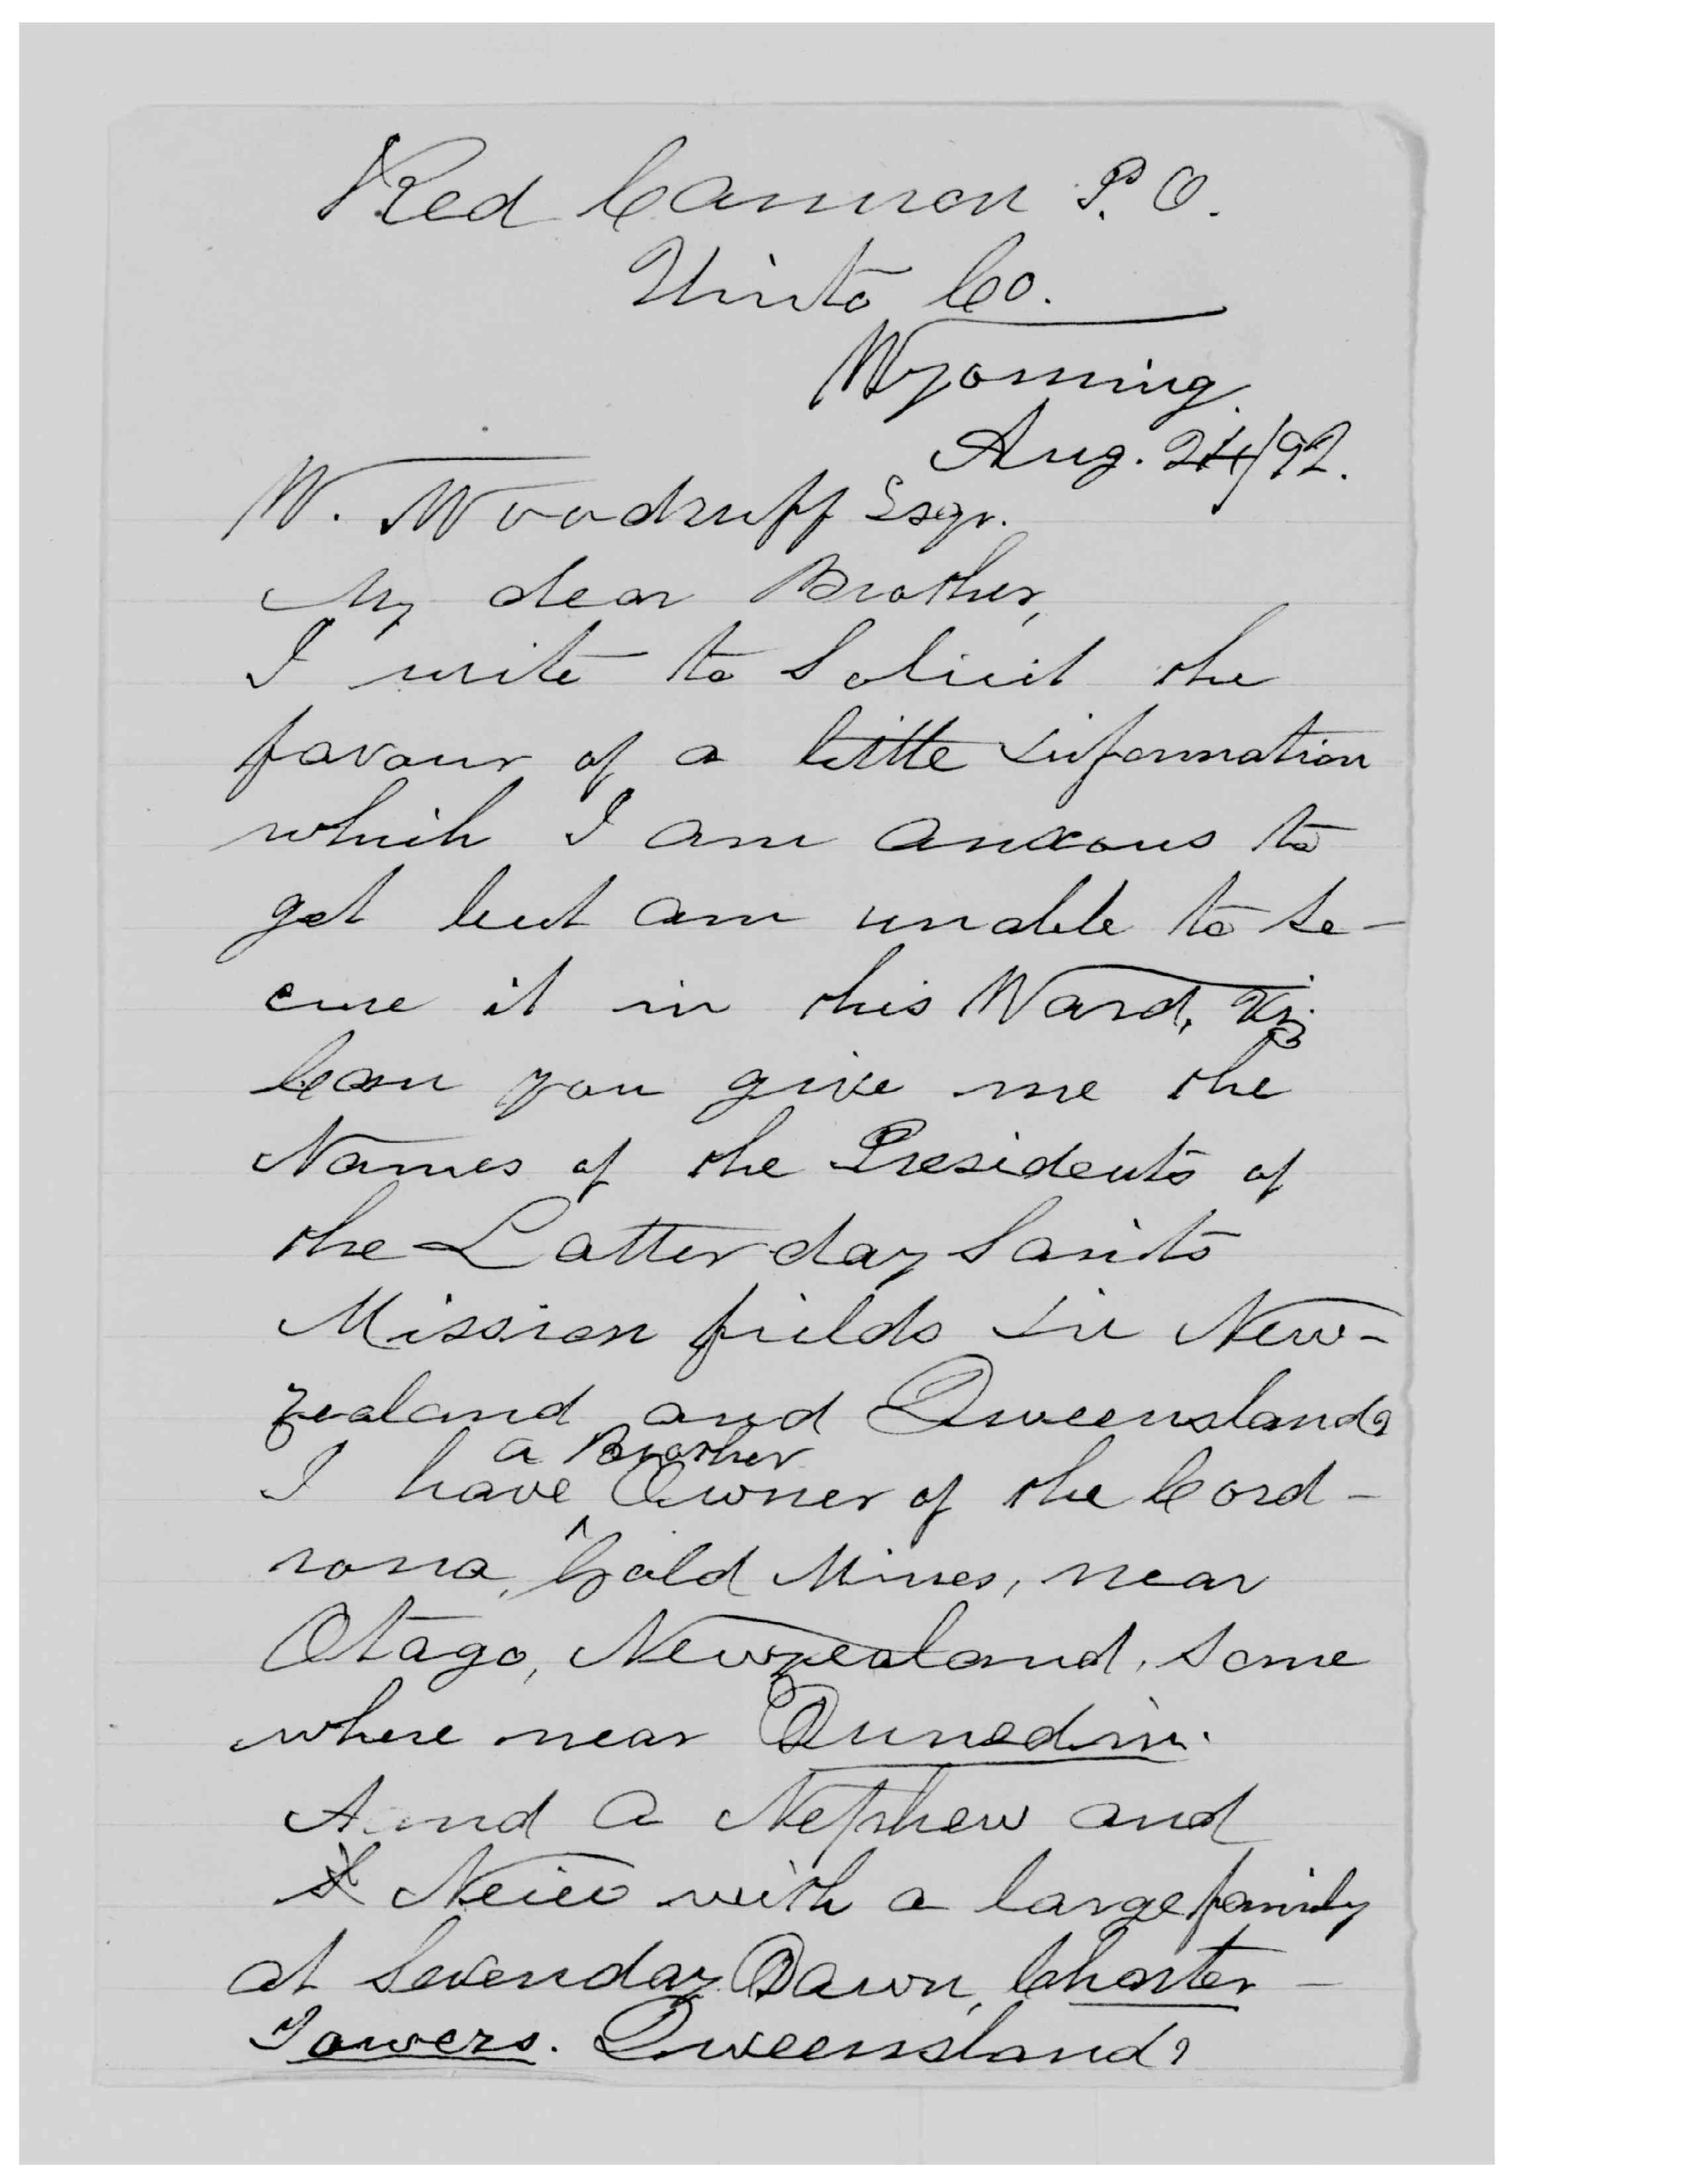 Red Cannon P. O.
Uinta Co.
Wyoming.
Aug. 24/92.
W. Woodruff Esqr.
My dear Brother,
I write to Solicit the
favour of a little information
which I am anxous to
get but am unable to se-
cure it in this Ward, Viz
Can you give me the
Names of the Presidents of
the Latterday Saints
Mission fields in New-
zealand and Queensland?
I have a Brother Owner of the Card-
rona, Gold Mines, near
Otago, Newzealand, some
where near Dunedin.
And a Nephew and
Neice with a large family
at Sevenday Dawn, Charter-
Towers. Queensland?